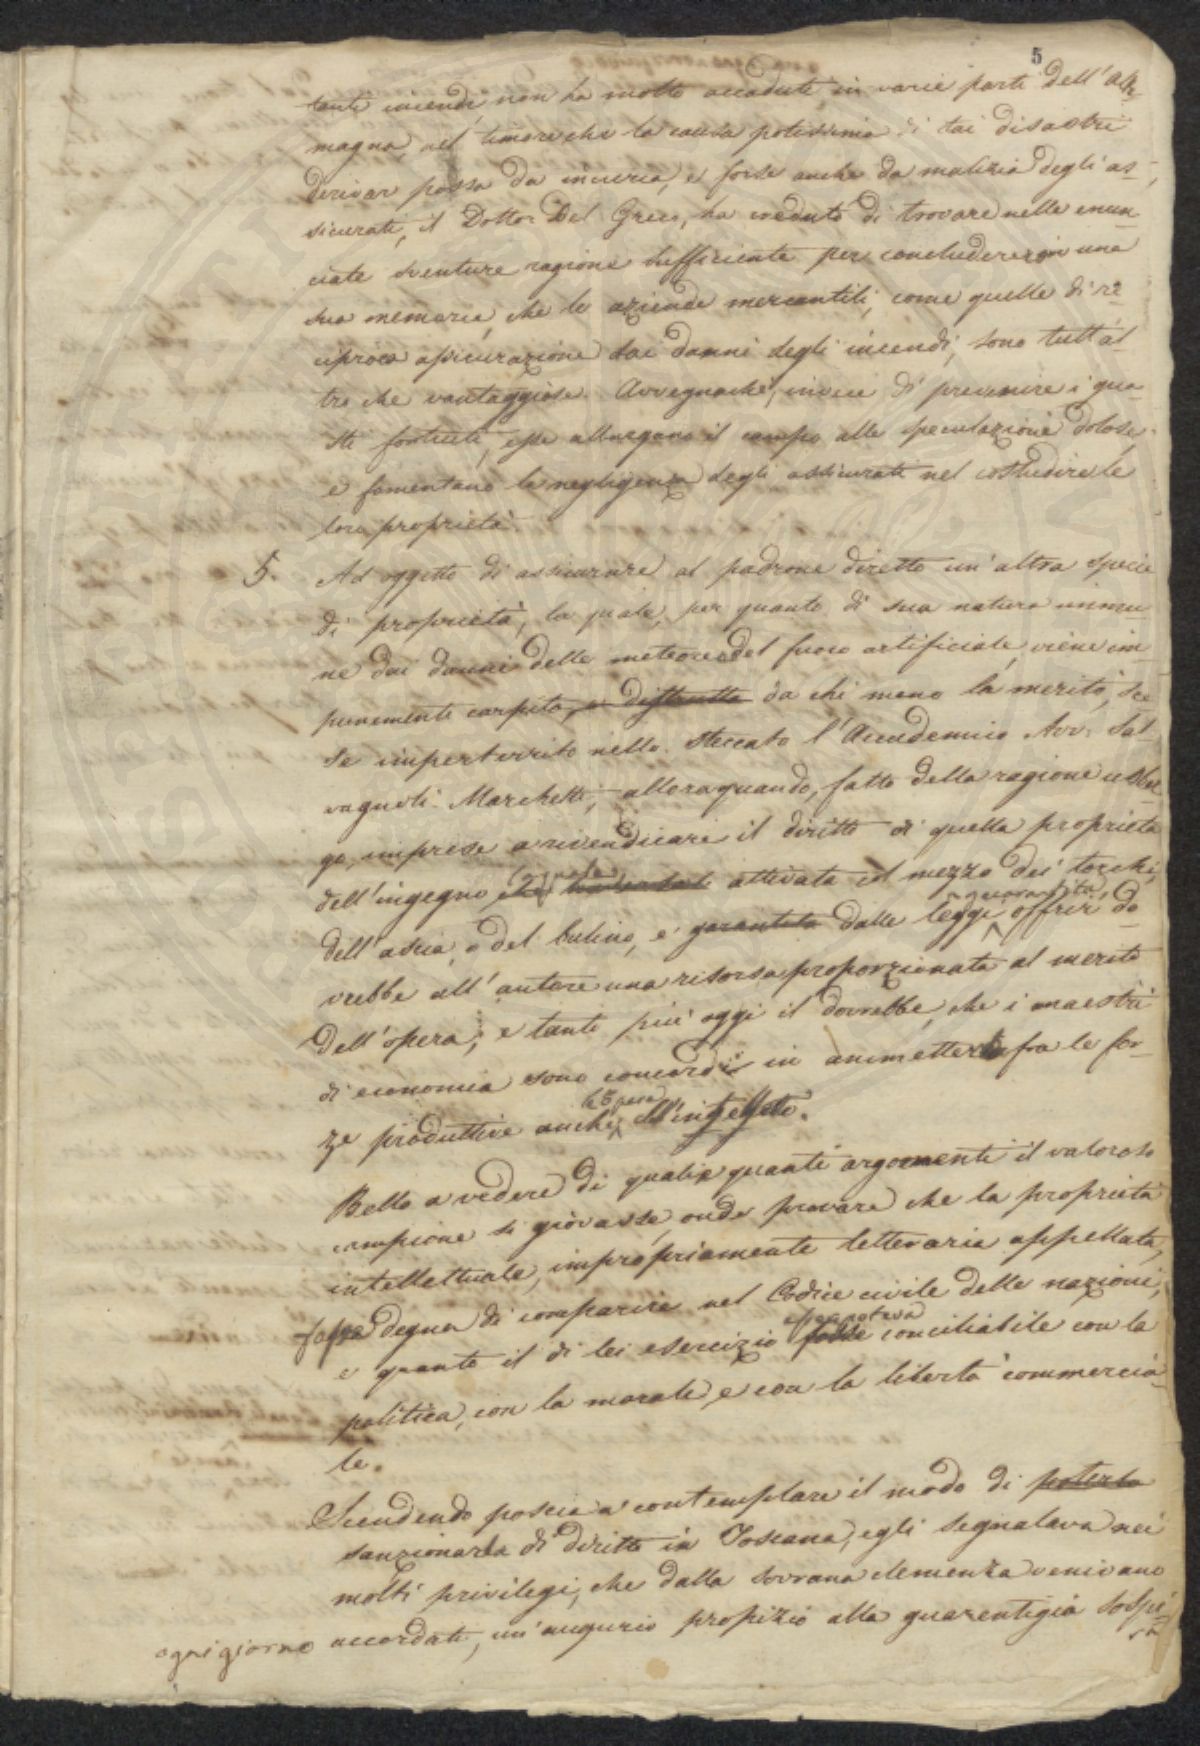 5
tanti incendi, non ha molto accaduti in varie parti dell'Ale-
magna, nel timore che la causa potissima di tai disastri
derivar possa da incuria, e forse anche da malizia degli as-
sicurati, il Dottor Del Greco, ha creduto di trovare nelle enun-
ciate sventure ragione sufficiente per concludere in una
sua memoria, che le aziende mercantili, come quelle di re-
ciproca assicurazione dai danni degli incendi, sono tutt'al-
tro che vantaggiose. Avvegnaché, invece di prevenire i gua-
sti fortuiti, esse allargano il campo alle speculazioni dolose,
e fomentano la negligenza degli assicurati nel custodire le
loro proprietà.
5. Ad oggetto di assicurare al padrone diretto un'altra specie
di proprietà, la quale, per quanto di sua natura immu-
ne dai danni delle meteore e del fuoco artificiale, viene im-
punemente carpita, e distrutta da chi meno la merita, sce-
se imperterrito nello steccato l'Accademico Avv. Sal-
vagnoli Marchetti, alloraquando, fatto della ragione usber-
go, imprese a rivendicare il diritto di quella proprietà
dell'ingegno che attivata col mezzo dei torchi,
dell'ascia, o del bulino, e garantita dalle leggi offrir do-
guarentita
vrebbe all'autore una risorsa proporzionata al merito
dell'opera; e tanto più oggi il dovrebbe, che i maestri
di economia sono concordi in ammettere fra le for-
ze produttive anche l'opera dell'intelletto.
Bello a vedere di quali e quanti argomenti il valoroso
campione si giovasse, onde provare che la proprietà
intellettuale, impropriamente letteraria appellata,
fosse degna di comparire nel Codice civile delle nazioni,
e quanto il di lei esercizio fosse conciliabile con la
esser poteva
politica, con la morale, e con la libertà commercia-
le.
Scendendo poscia a contemplare il modo di poterla
sanzionarla di diritto in Toscana, egli segnalava nei
molti privilegi, che dalla sovrana clemenza venivano
ogni giorno accordati, un'augurio propizio alla guarentigia sospi-
ra